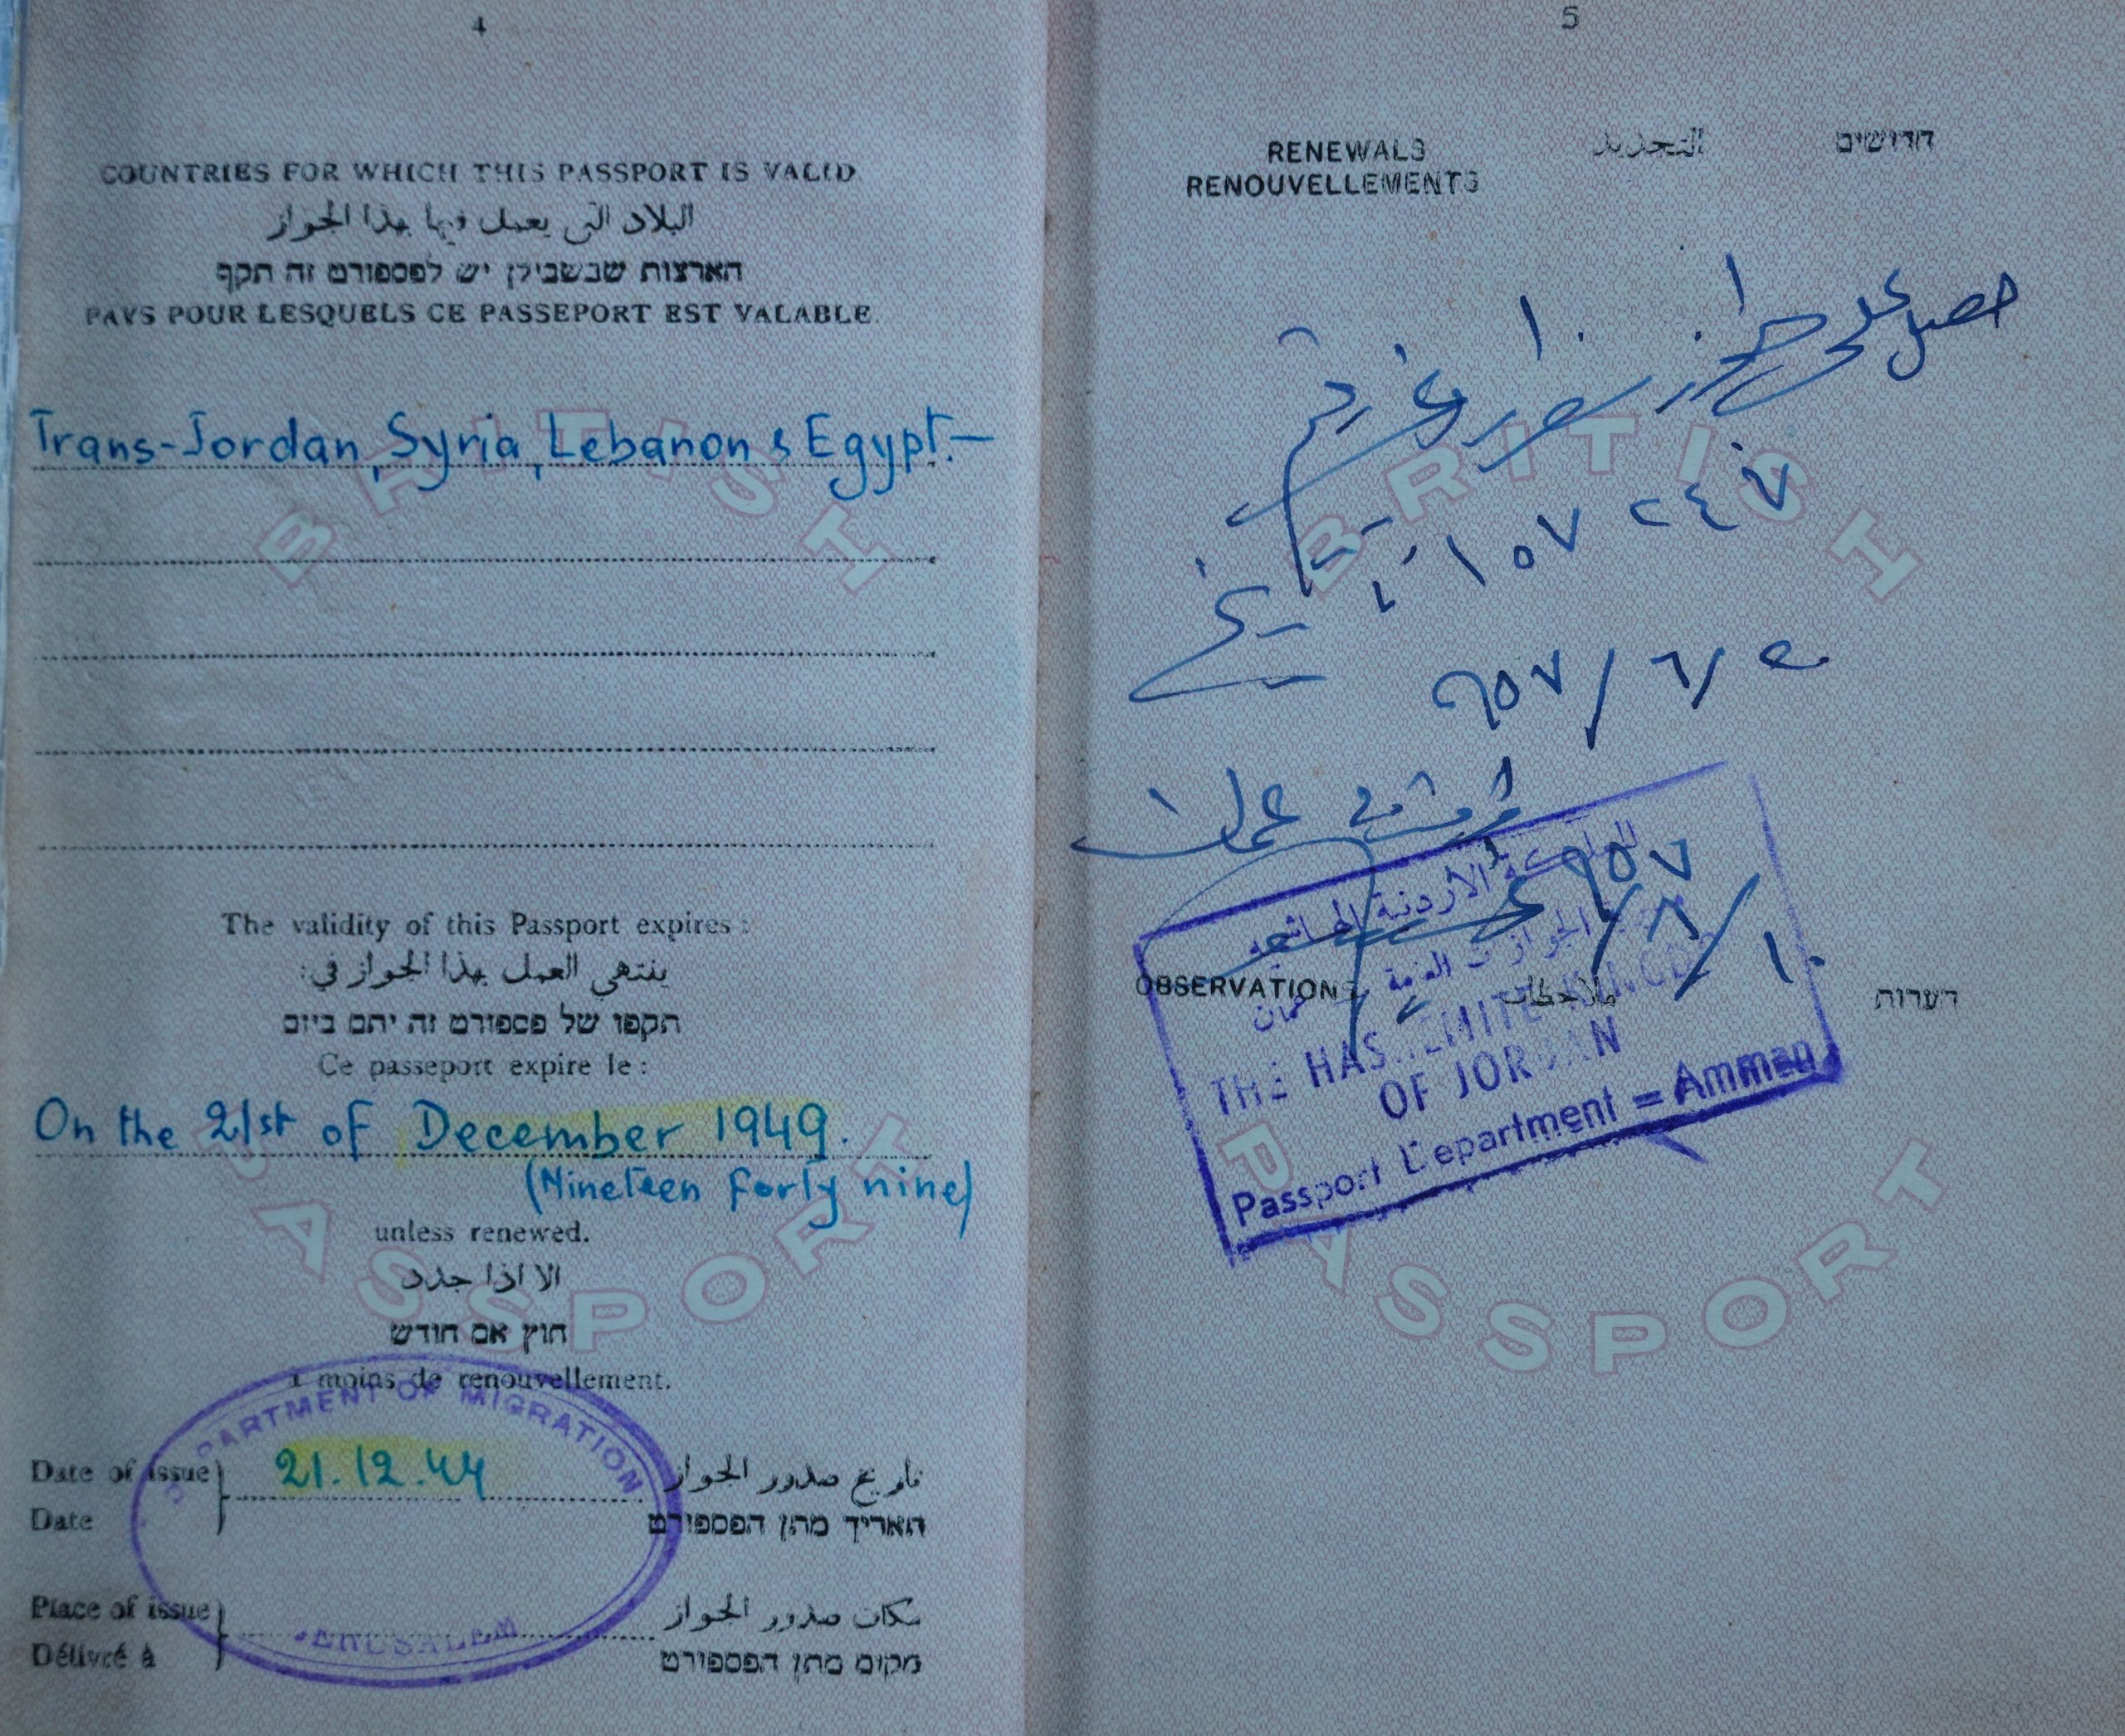 4
COUNTRIES FOR WHICH THIS PASSPORT IS VALID
البلاد التي يعمل فيها بهذا الجواز
הארצות שבשבילן יש לפספורט זה תקף
PAYS POUR LESQUELS CE PASSEPORT EST VALABLE.
Trans-Jordan, Syria, Lebanon & Egypt.—
BRITISH
The validity of this Passport expires:
ينتهي العمل بهذا الجواز في:
תקפו של פספורט זה יתם ביום
Ce passeport expire le:
On the 21st of December 1949.
(Nineteen forty nine)
unless renewed.
الا اذا جدد
חוץ אם חודש
à moins de renouvellement.
PASSPORT
DEPARTMENT OF MIGRATION
Date of issue 21.12.44 تاريخ صدور الجواز
Date תאריך מתן הפספורט
Place of issue مكان صدور الجواز
Délivré à מקום מתן הפספורט
JERUSALEM
5
RENEWALS التجديد חדושים
RENOUVELLEMENTS
حصل على جواز سفر
BRITISH
٩٥٧
عمان
٩٥٧
١٠/٨/
المملكة الاردنية الهاشمية
الجوازات العامة
عمان
OBSERVATIONS ملاحظات הערות
THE HASHEMITE KINGDOM
OF JORDAN
Passport Department = Amman
PASSPORT